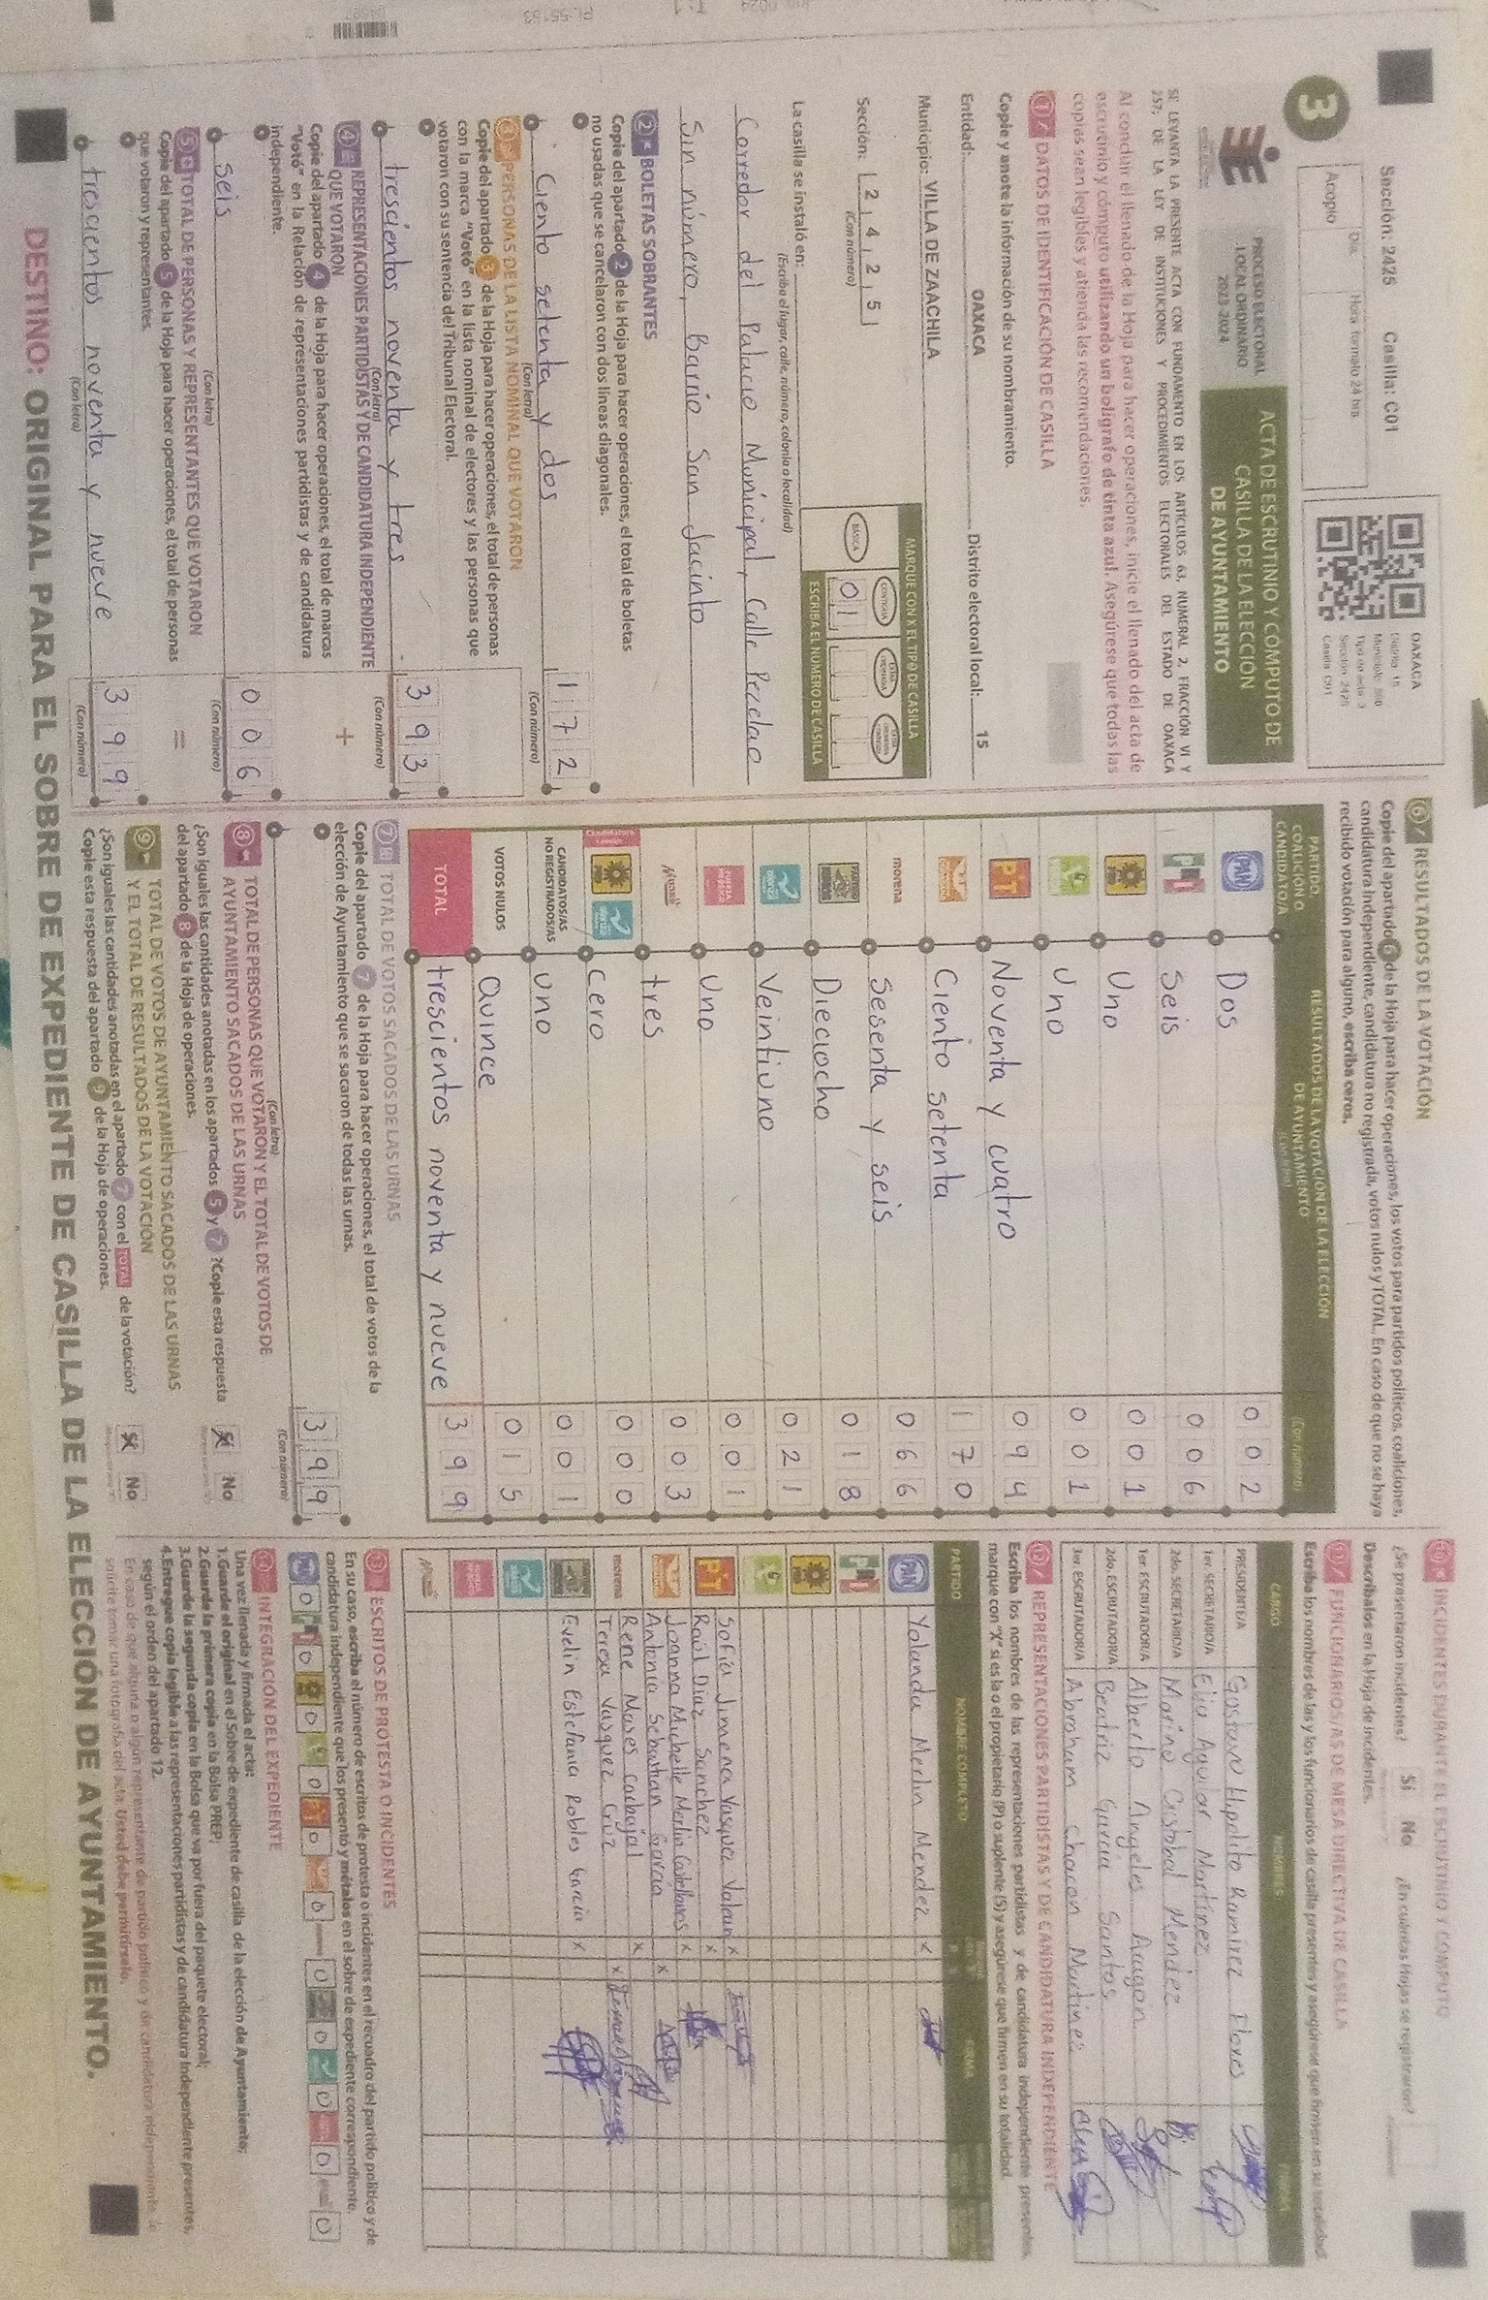 Sección: 2425 Casilla: C01
Día Hora formato 24 hrs
Acopio
3
OAXACA
Distrito 15
Sección 2425
Casilla C01
PROCESO ELECTORAL
LOCAL ORDINARIO
2023-2024
ACTA DE ESCRUTINIO Y CÓMPUTO DE
CASILLA DE LA ELECCIÓN
DE AYUNTAMIENTO
SE LEVANTA LA PRESENTE ACTA CON FUNDAMENTO EN LOS ARTÍCULOS 63, NUMERAL 2, FRACCIÓN VI Y
257; DE LA LEY DE INSTITUCIONES Y PROCEDIMIENTOS ELECTORALES DEL ESTADO DE OAXACA
Al concluir el llenado de la Hoja para hacer operaciones, inicie el llenado del acta de
escrutinio y cómputo utilizando un bolígrafo de tinta azul. Asegúrese que todas las
copias sean legibles y atienda las recomendaciones.
1 DATOS DE IDENTIFICACIÓN DE CASILLA
Copie y anote la información de su nombramiento.
Entidad: OAXACA Distrito electoral local: 15
Municipio: VILLA DE ZAACHILA
Sección: 2 4 2 5
(Con número)
MARQUE CON X EL TIPO DE CASILLA
BÁSICA CONTIGUA
0 1
ESCRIBA EL NÚMERO DE CASILLA
La casilla se instaló en:
(Escriba el lugar, calle, número, colonia o localidad)
Corredor del Palacio Municipal, Calle
Sin número, Barrio San Jacinto
2 BOLETAS SOBRANTES
Copie del apartado 2 de la Hoja para hacer operaciones, el total de boletas
no usadas que se cancelaron con dos líneas diagonales.
Ciento setenta y dos 1 7 2
(Con letra) (Con número)
3 PERSONAS DE LA LISTA NOMINAL QUE VOTARON
Copie del apartado 3 de la Hoja para hacer operaciones, el total de personas
con la marca "Votó" en la lista nominal de electores y las personas que
votaron con su sentencia del Tribunal Electoral.
trescientos noventa y tres 3 9 3
(Con letra) (Con número)
4 REPRESENTACIONES PARTIDISTAS Y DE CANDIDATURA INDEPENDIENTE
QUE VOTARON
+
Copie del apartado 4 de la Hoja para hacer operaciones, el total de marcas
"Votó" en la Relación de representaciones partidistas y de candidatura
independiente.
seis 0 0 6
(Con letra) (Con número)
5 TOTAL DE PERSONAS Y REPRESENTANTES QUE VOTARON
=
Copie del apartado 5 de la Hoja para hacer operaciones, el total de personas
que votaron y representantes.
trescientos noventa y nueve 3 9 9
(Con letra) (Con número)
6 RESULTADOS DE LA VOTACIÓN
Copie del apartado 6 de la Hoja para hacer operaciones, los votos para partidos políticos, coaliciones,
candidatura independiente, candidatura no registrada, votos nulos y TOTAL. En caso de que no se haya
recibido votación para alguno, escriba ceros.
PARTIDO,
COALICIÓN O
CANDIDATO/A
RESULTADOS DE LA VOTACIÓN DE LA ELECCIÓN
DE AYUNTAMIENTO
(Con letra) (Con número)
PAN Dos 0 0 2
PRI Seis 0 0 6
PRD Uno 0 0 1
Uno 0 0 1
PT Noventa y cuatro 0 9 4
Ciento setenta 1 7 0
morena Sesenta y seis 0 6 6
Dieciocho 0 1 8
Veintiuno 0 2 1
Uno 0 0 1
tres 0 0 3
cero 0 0 0
CANDIDATOS/AS
NO REGISTRADOS/AS uno 0 0 1
VOTOS NULOS quince 0 1 5
TOTAL trescientos noventa y nueve 3 9 9
7 TOTAL DE VOTOS SACADOS DE LAS URNAS
Copie del apartado 7 de la Hoja para hacer operaciones, el total de votos de la
elección de Ayuntamiento que se sacaron de todas las urnas.
3 9 9
(Con letra) (Con número)
8 TOTAL DE PERSONAS QUE VOTARON Y EL TOTAL DE VOTOS DE
AYUNTAMIENTO SACADOS DE LAS URNAS
¿Son iguales las cantidades anotadas en los apartados 5 y 7? Copie esta respuesta
del apartado 8 de la Hoja de operaciones.
Sí No
9 TOTAL DE VOTOS DE AYUNTAMIENTO SACADOS DE LAS URNAS
Y EL TOTAL DE RESULTADOS DE LA VOTACIÓN
¿Son iguales las cantidades anotadas en el apartado 7 con el TOTAL de la votación?
Copie esta respuesta del apartado 9 de la Hoja de operaciones.
Sí No
10 INCIDENTES DURANTE EL ESCRUTINIO Y CÓMPUTO
¿Se presentaron incidentes? Sí No ¿En cuántas Hojas se registraron?
Descríbalos en la Hoja de incidentes.
11 FUNCIONARIOS/AS DE MESA DIRECTIVA DE CASILLA
Escriba los nombres de las y los funcionarios de casilla presentes y asegúrese que firmen en su totalidad.
CARGO NOMBRES FIRMAS
PRESIDENTE/A Gustavo Hipolito Ramírez Flores
1er. SECRETARIO/A Elia Aguilar Martínez
2do. SECRETARIO/A Marino Cristobal Mendez
1er. ESCRUTADOR/A Alberto Angeles Aragon
2do. ESCRUTADOR/A Beatriz García Santos
3er. ESCRUTADOR/A Abraham Chacon Martinez
12 REPRESENTACIONES PARTIDISTAS Y DE CANDIDATURA INDEPENDIENTE
Escriba los nombres de las representaciones partidistas y de candidatura independiente presentes,
marque con "X" si es la o el propietario (P) o suplente (S) y asegúrese que firmen en su totalidad.
PARTIDO NOMBRE COMPLETO FIRMA
PAN Yolanda Merlin Mendez x
PRI
PRD
Sofia Jimena Vasquez x
PT Raúl Diaz Sanchez x
Joanna Michelle Merlin Castellanos x
Antonia Sebastian García x
morena Rene Moses Carbajal x
Teresa Vasquez Cruz x
Evelin Estefania Robles Garcia x
13 ESCRITOS DE PROTESTA O INCIDENTES
En su caso, escriba el número de escritos de protesta o incidentes en el recuadro del partido político y de
candidatura independiente que los presentó y métalos en el sobre de expediente correspondiente.
0 0 0 0 0 0 0 0 0 0 0
14 INTEGRACIÓN DEL EXPEDIENTE
Una vez llenada y firmada el acta:
1. Guarde el original en el Sobre de expediente de casilla de la elección de Ayuntamiento;
2. Guarde la primera copia en la Bolsa PREP;
3. Guarde la segunda copia en la Bolsa que va por fuera del paquete electoral;
4. Entregue copia legible a las representaciones partidistas y de candidatura Independiente presentes,
según el orden del apartado 12.
En caso de que alguna o algún representante de partido político y de candidatura independiente le
solicite tomar una fotografía del acta. Usted debe permitírselo.
DESTINO: ORIGINAL PARA EL SOBRE DE EXPEDIENTE DE CASILLA DE LA ELECCIÓN DE AYUNTAMIENTO.